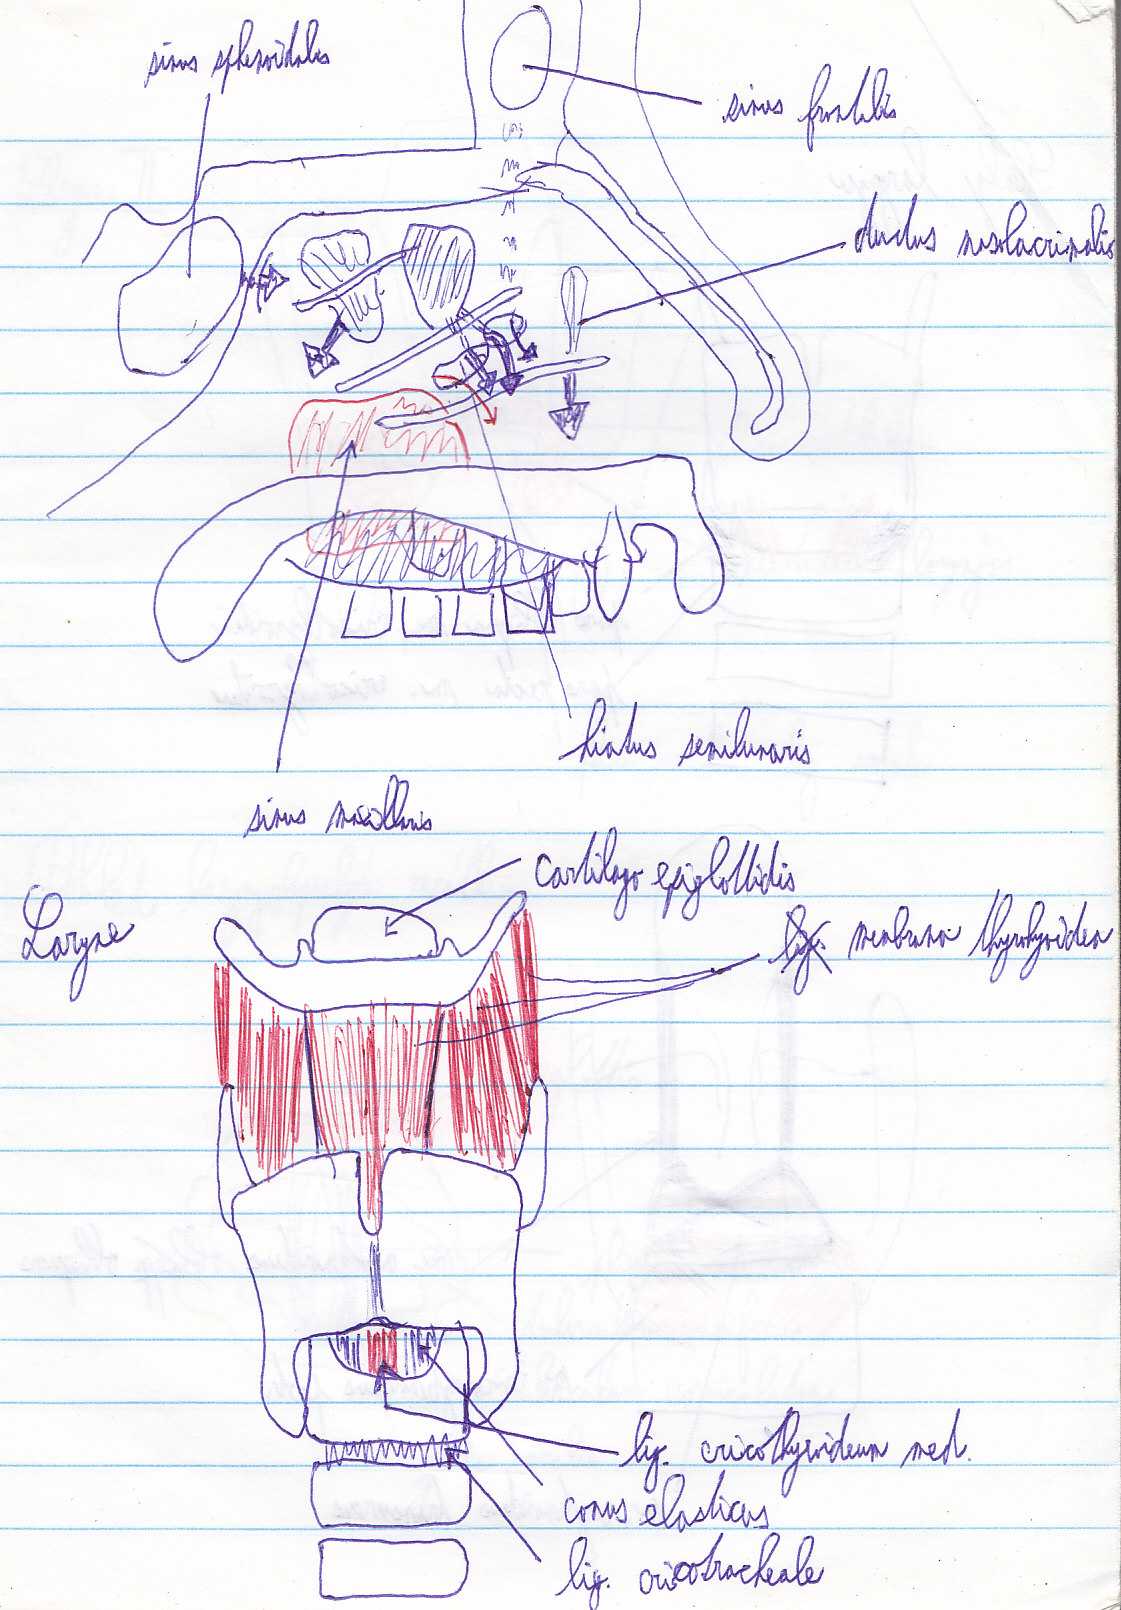 sinus sphenoidalis
sinus frontalis
ductus nasolacrimalis
hiatus semilunaris
sinus maxillaris
cartilago epiglottidis
Larynx
lig. membrana thyrohyoidea
lig. cricothyroideum med.
conus elasticus
lig. cricotracheale